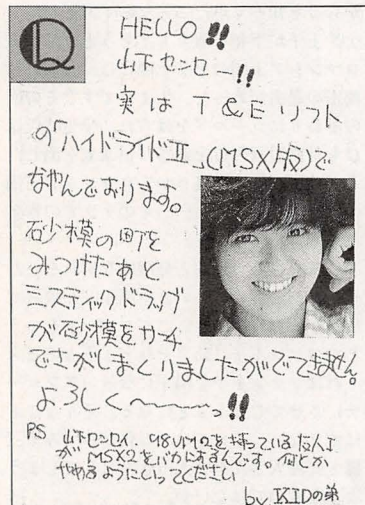 Q
HELLO!!
山下センセー!!
実は T&Eソフト
の「ハイドライドⅡ」(MSX版)で
なやんでおります。
砂模の町を
みつけたあと
ミスティックドラッグ
が砂模をサーチ
でさがしまくりましたがでてきません。
よろしく〜〜〜っ!!
PS 山下センセイ、98VM2を持っている友人I
が MSX2をバカにするんです。何とか
やめるようにいってください
by KIDの弟